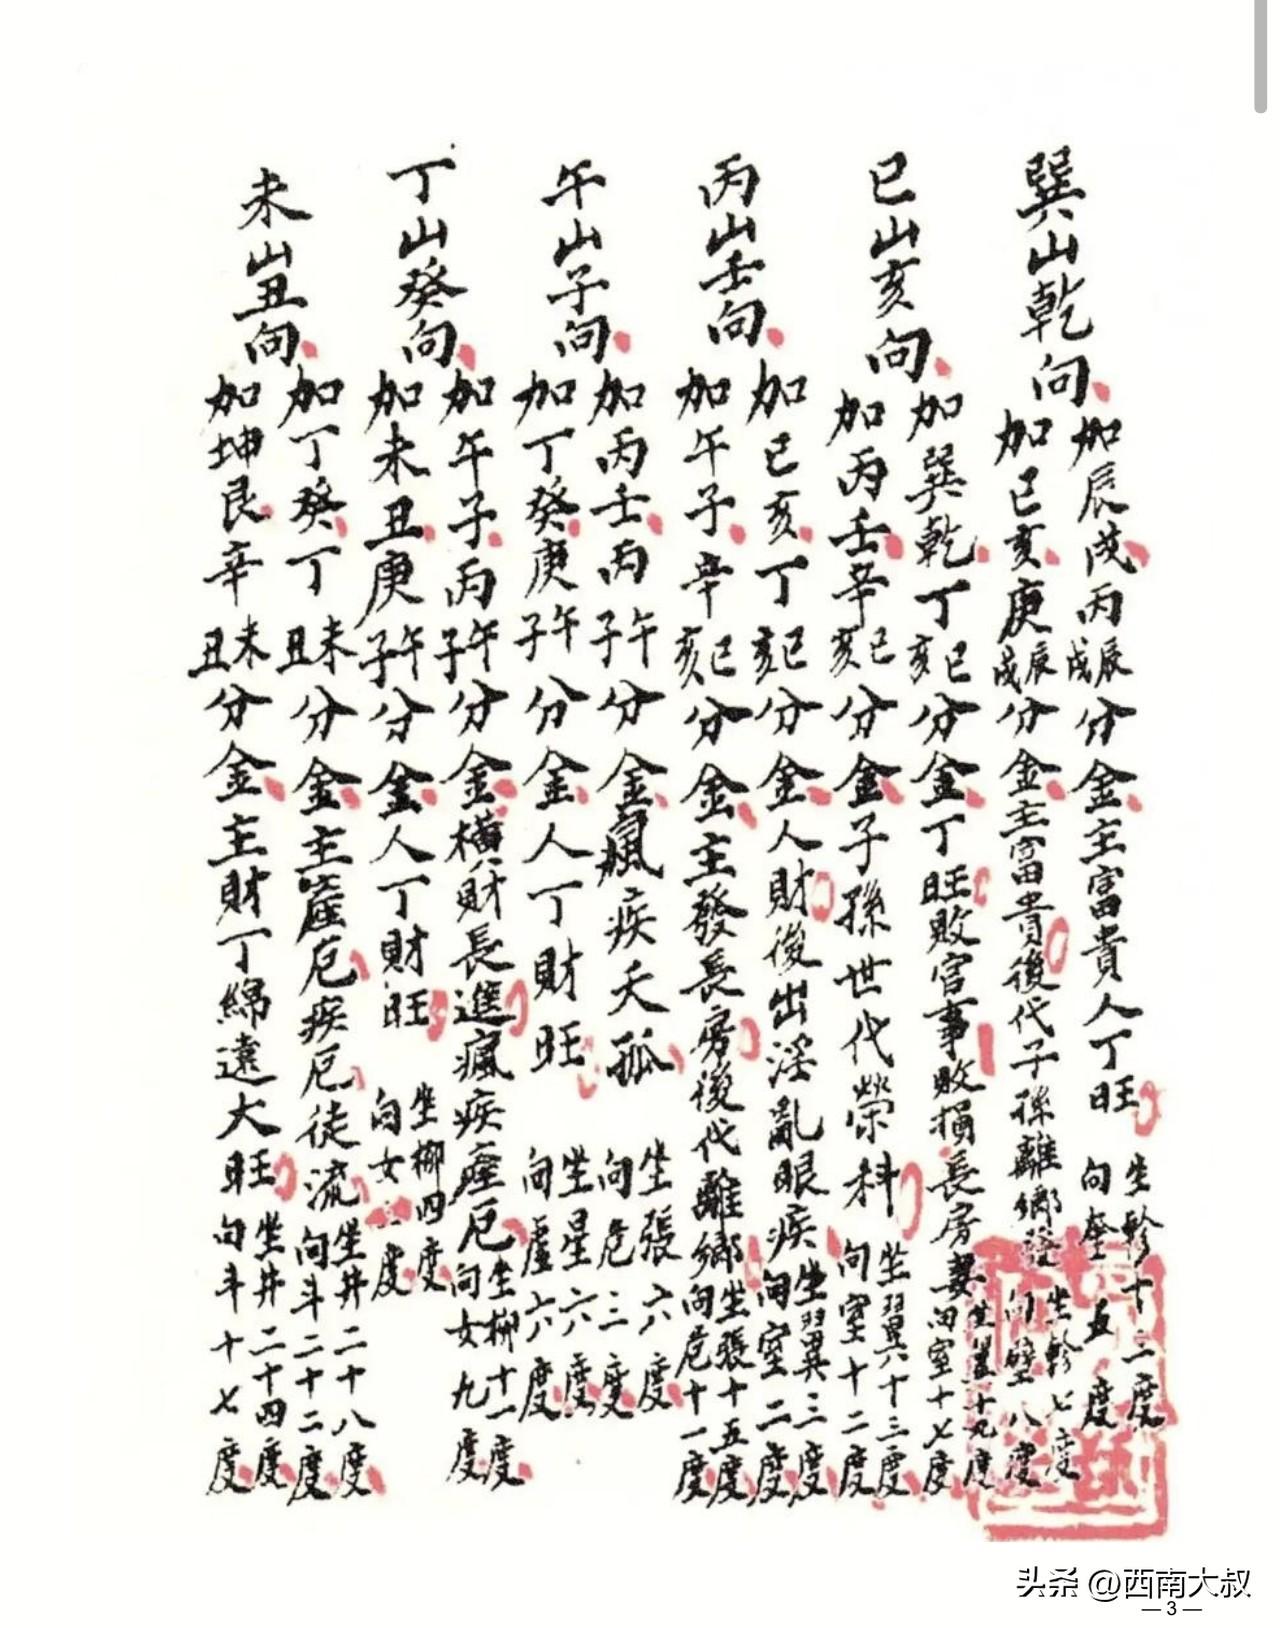 巽山乾向
加辰戌丙辰戌分金主富貴人丁旺
坐軫十二度
向奎五度
加巳亥庚辰戌分金主富貴後代子孫離鄉發
坐軫七度
向壁八度
巳山亥向
加巽乾丁巳亥分金丁旺敗官事敗損長房妻
坐翼十九度
向室十七度
加丙壬辛巳亥分金子孫世代榮科
坐翼十三度
向室十二度
丙山壬向
加巳亥丁巳亥分金人財後出淫亂眼疾
坐翼三度
向室二度
加午子辛巳亥分金主發長房後代離鄉
坐張十五度
向危十一度
午山子向
加丙壬丙午子分金瘋疾夭孤
坐張六度
向危三度
加丁癸庚午子分金人丁財旺
坐星六度
向虛六度
丁山癸向
加午子丙午子分金橫財長進瘋疾產厄
坐柳十一度
向女九度
加未丑庚午子分金人丁財旺
坐柳四度
向女二度
未山丑向
加丁癸丁未丑分金主產厄疾厄徒流
坐井二十八度
向斗二十二度
加坤艮辛未丑分金主財丁綿遠大旺
坐井二十四度
向斗十七度
头条 @西南大叔
—3—